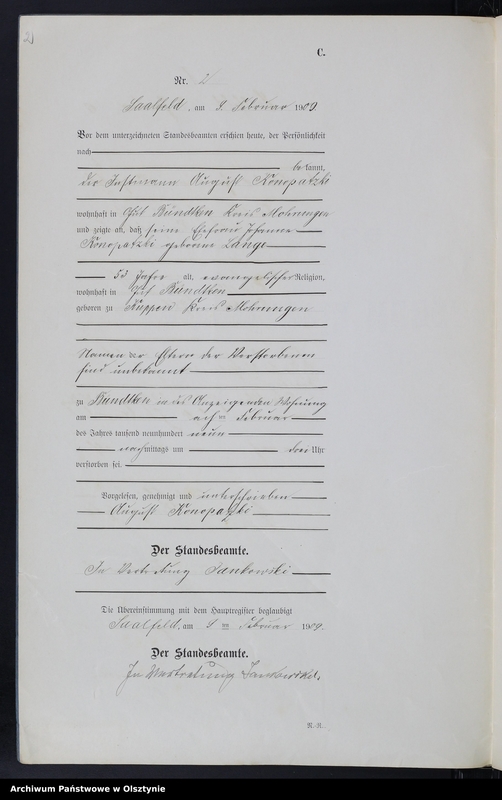 C.
Nr. 2
Saalfeld, am 9. Februar 1909.
Vor dem unterzeichneten Standesbeamten erschien heute, der Persönlichkeit
nach
bekannt,
der Instmann August Konopatzki
wohnhaft in Gut Bündtken Kreis Mohrungen
und zeigte an, daß seine Ehefrau Johanne
Konopatzki geborene Lange
53 Jahre alt, evangelischer Religion,
wohnhaft in Gut Bündtken
geboren zu Kuppen Kreis Mohrungen
Namen der Eltern der Verstorbenen
sind unbekannt
zu Bündtken in des Anzeigenden Wohnung
am achten Februar
des Jahres tausend neunhundert neun
nachmittags um drei Uhr
verstorben sei.
Vorgelesen, genehmigt und unterschrieben
August Konopatzki
Der Standesbeamte.
In Vertretung Jankowski
Die Übereinstimmung mit dem Hauptregister beglaubigt
Saalfeld, am 9 ten Februar 1909.
Der Standesbeamte.
In Vertretung
Archiwum Państwowe w Olsztynie